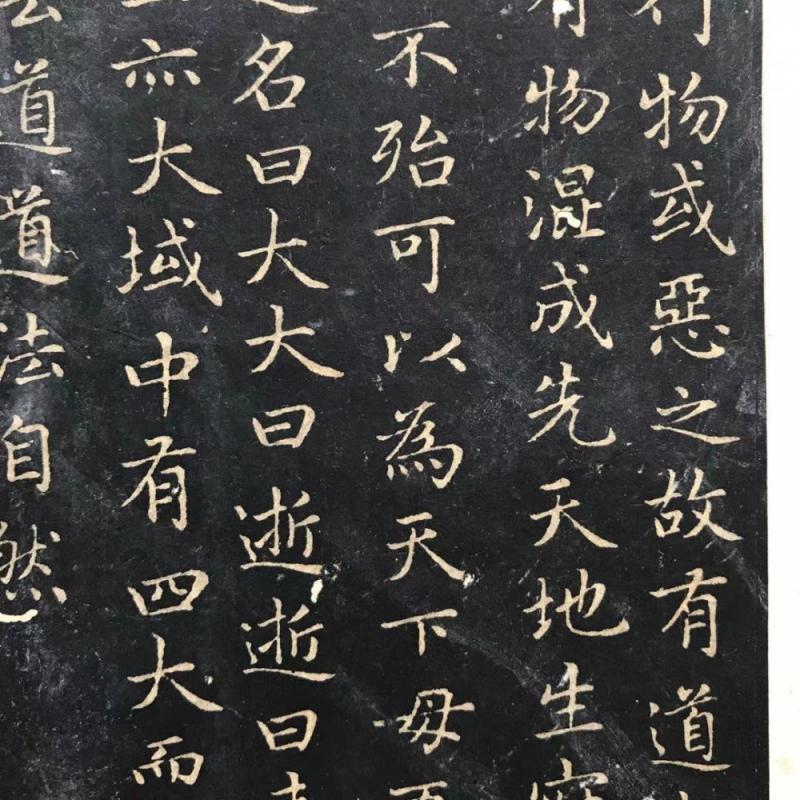 行物或惡之故有道
有物混成先天地生寂
不殆可以為天下母吾
之名曰大大曰逝逝曰遠
亦大域中有四大而
法道道法自然